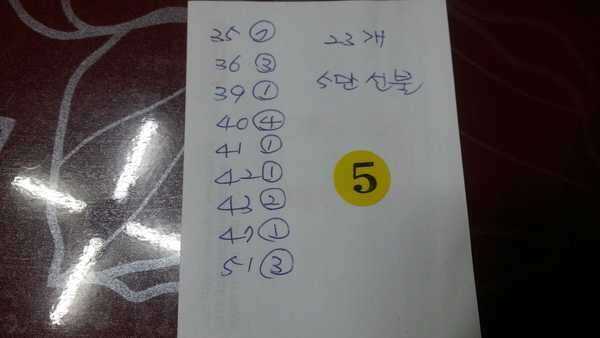 35 ⑦
36 ③
39 ①
40 ④
41 ①
42 ①
43 ②
47 ①
51 ③
23개
5단 선불
5